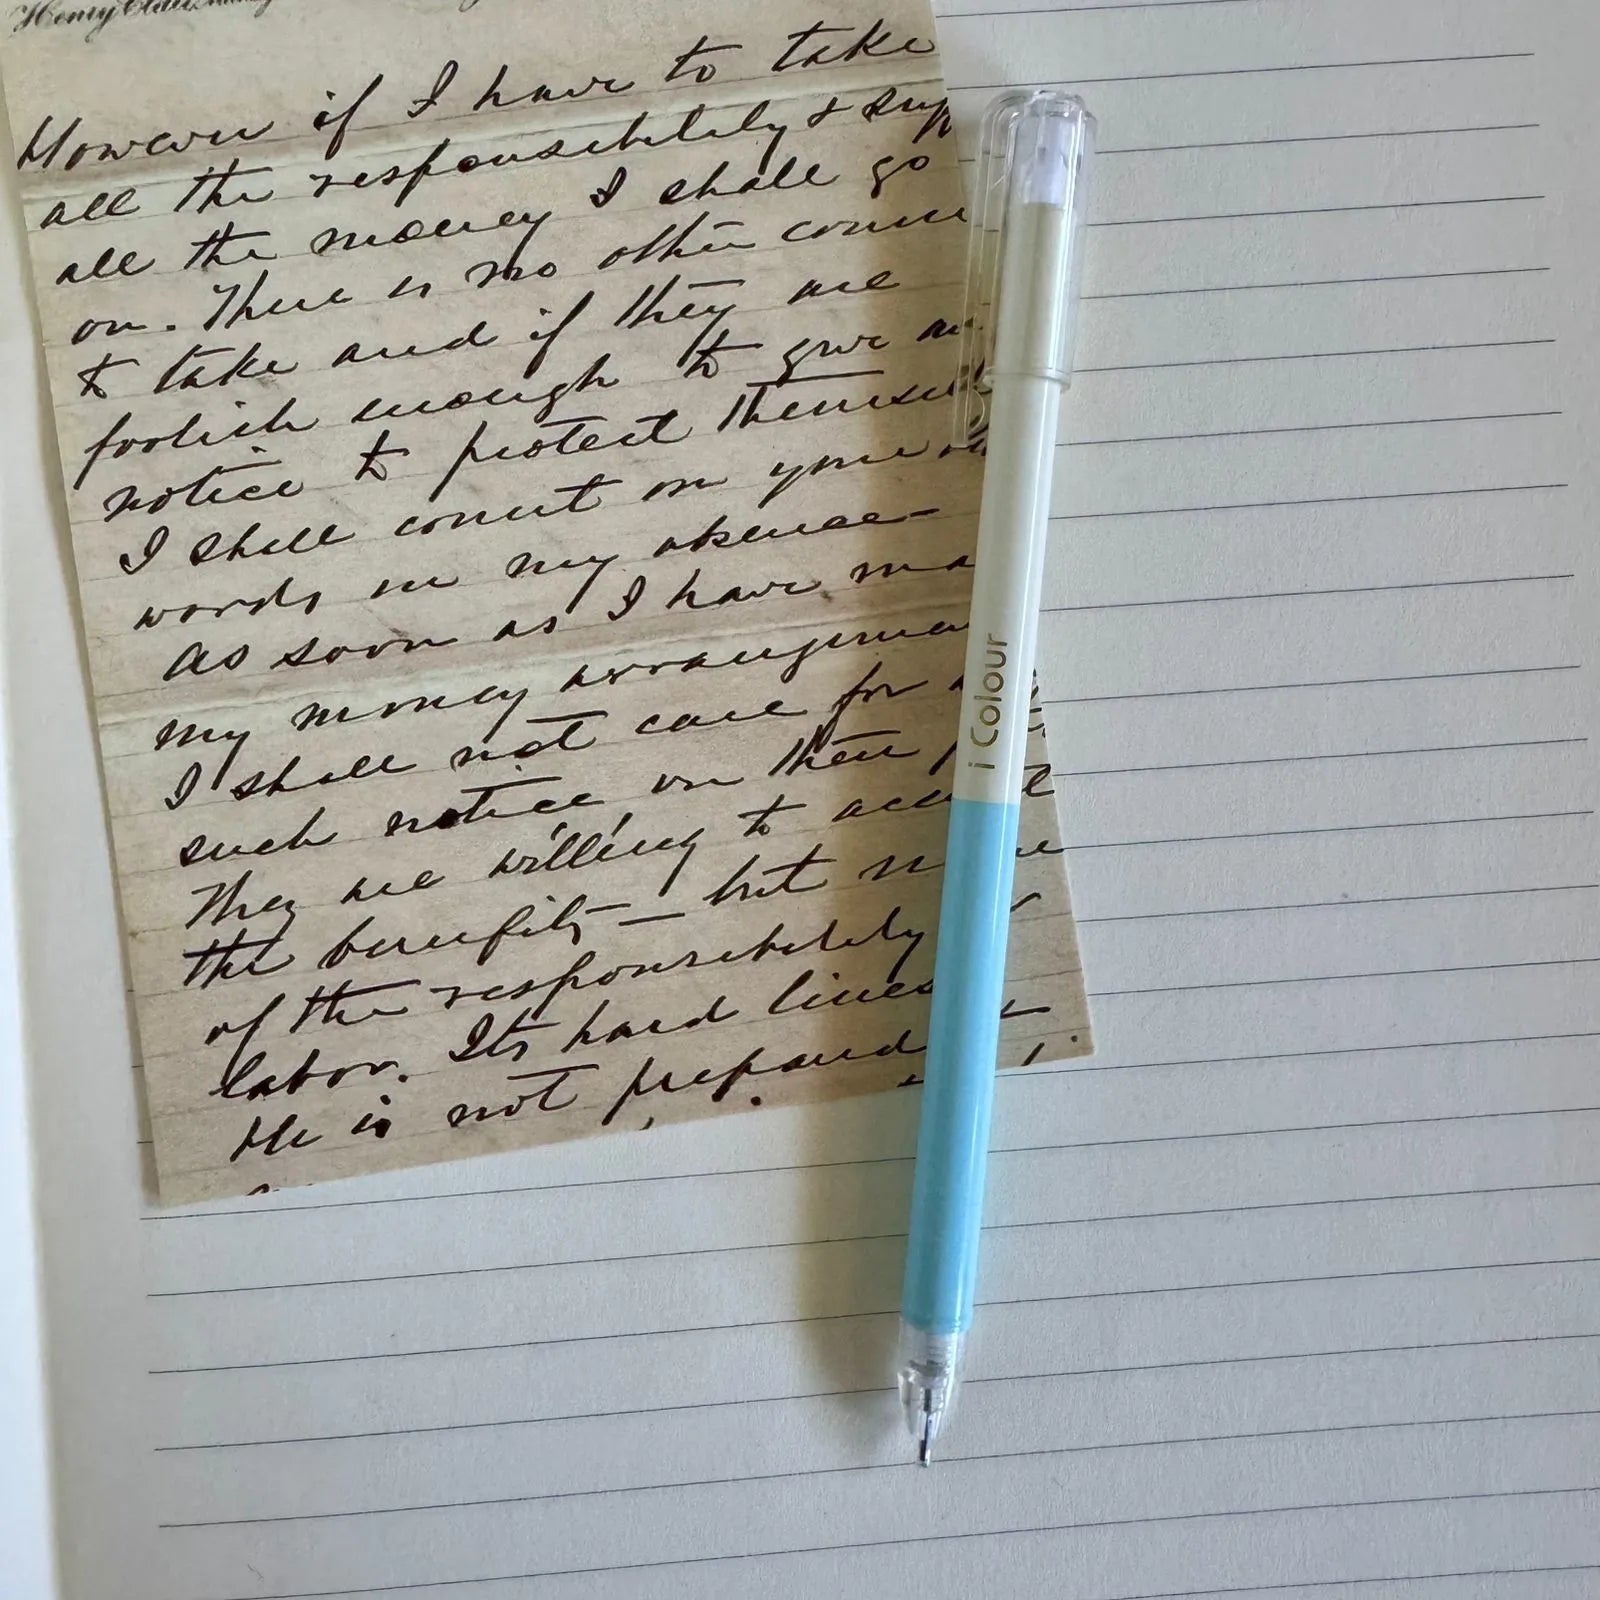 However if I have to take
all the responsibility & sup
all the money I shall go
on. There is no other course
to take and if they are
foolish enough to give
notice to protect themsel
I shall count on your
words in my absence—
As soon as I have ma
my money arrangemen
I shall not care for
such notice on their
They are willing to
the benefits — but
of the responsibility
labor. Its hard lines
He is not prepared
i Colour